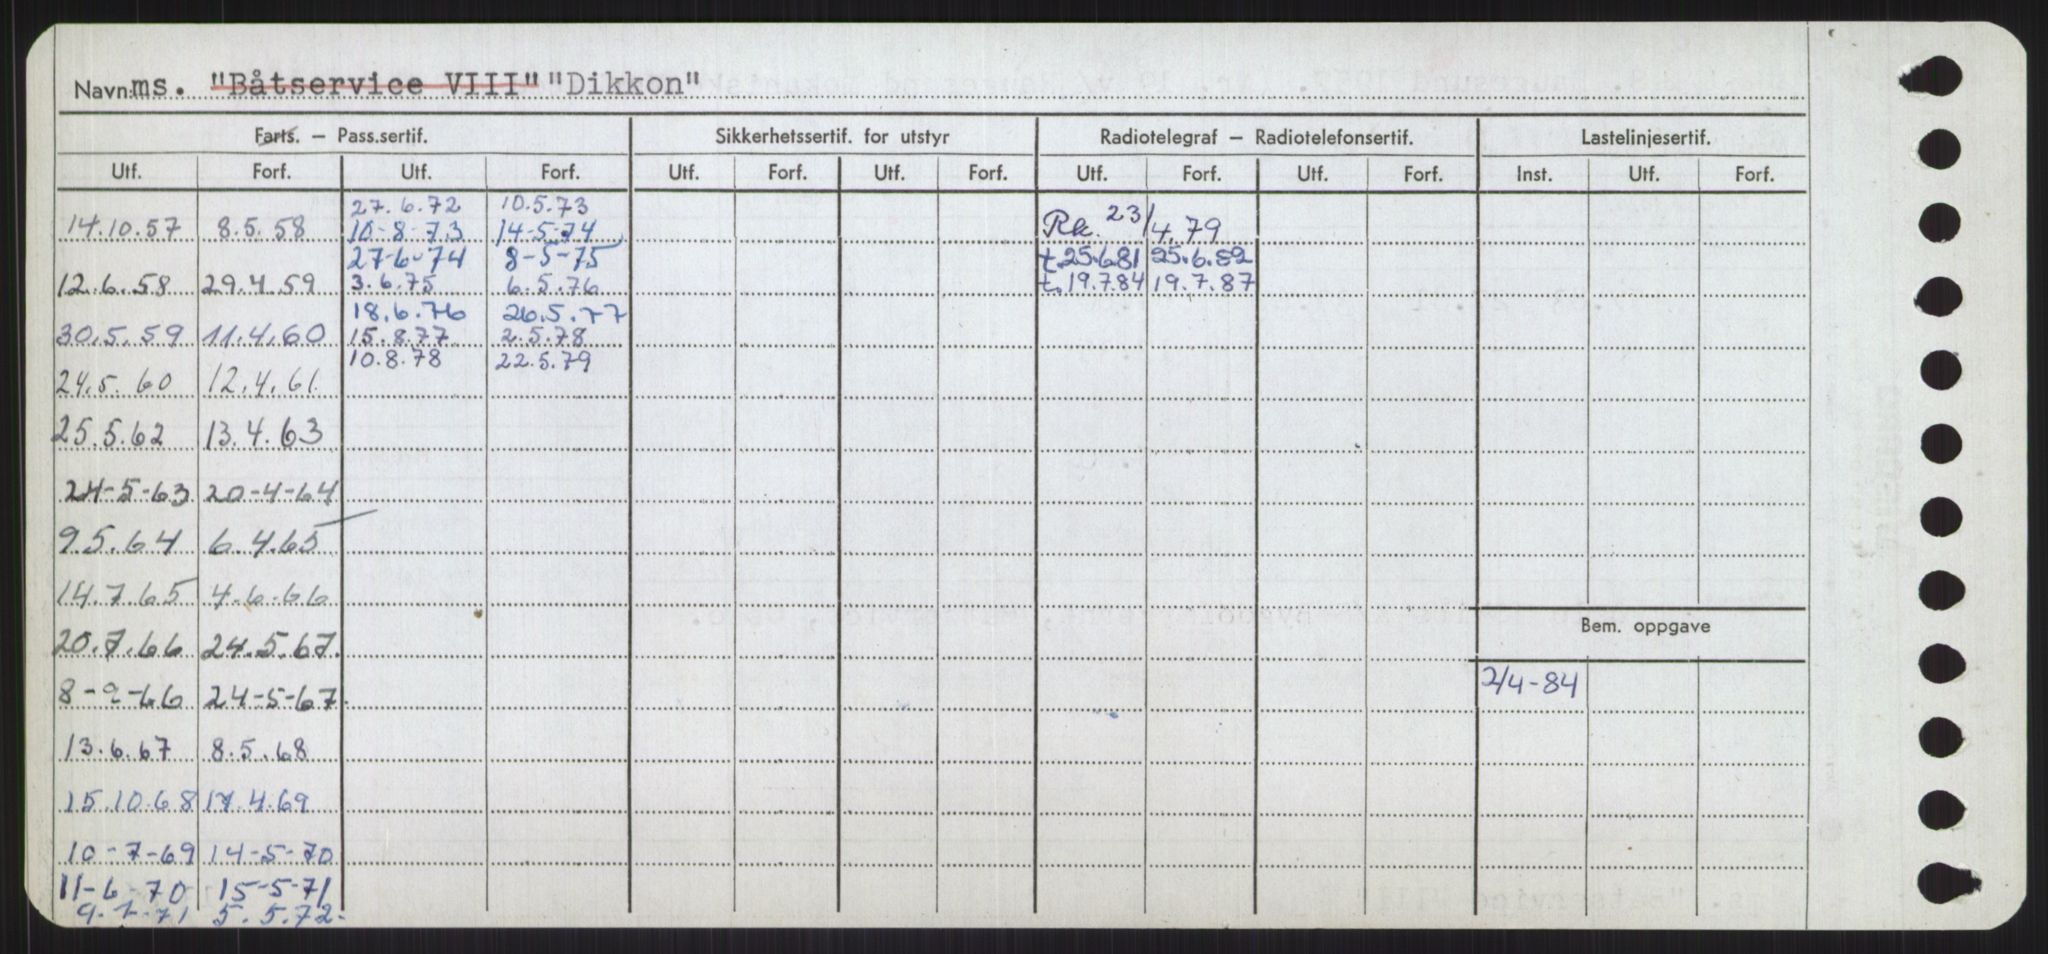 Navn: ms. "Båtservice VIII" "Dikkon"
Farts. – Pass.sertif. Sikkerhetssertif. for utstyr Radiotelegraf – Radiotelefonsertif. Lastelinjesertif.
Utf. Forf. Utf. Forf. Utf. Forf. Utf. Forf. Utf. Forf. Utf. Forf. Inst. Utf. Forf.
27.6.72 10.5.73
14.10.57 8.5.58 10-8-73 14-5-74 Rk. 23/4.79
27-6-74 8-5-75 t 25.6.81 25.6.82
12.6.58 29.4.59 3.6.75 6.5.76 t. 19.7.84 19.7.87
18.6.76 26.5.77
30.5.59 11.4.60 15.8.77 2.5.78
10.8.78 22.5.79
24.5.60 12.4.61
25.5.62 13.4.63
24-5-63 20-4-64
9.5.64 6.4.65
14.7.65 4.6.66
Bem. oppgave
20.7.66 24.5.67.
8-9-66 24-5-67. 2/4-84
13.6.67 8.5.68
15.10.68 17.4.69
10-7-69 14-5-70
11-6-70 15-5-71
5.5.72.